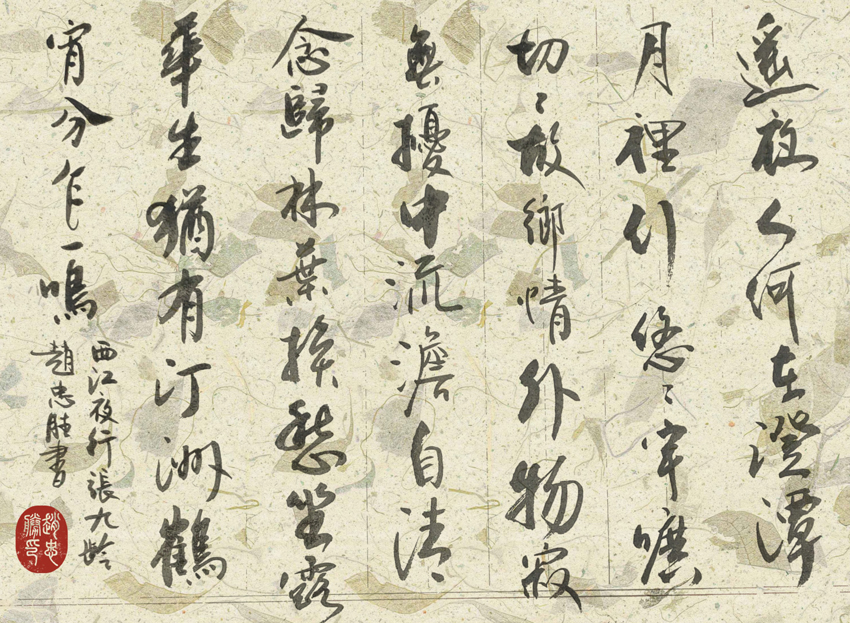 遙夜人何在澄潭
月裡行悠〻宇曠
切〻故鄉情外物寂
無擾中流澹自清
念歸林葉換愁坐露
華生猶有汀洲鶴
宵分乍一鳴
西江夜行張九齡
趙忠胜書
趙忠勝印